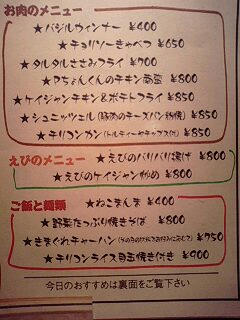 お肉のメニュー
★バジルウィンナー ¥400
★チョリソーきゃべつ ¥650
★タルタルささみフライ ¥700
★Pちょんくんのチキン南蛮 ¥800
★ケイジャンチキン&ポテトフライ ¥850
★シュニッツェル(豚肉のチーズパン粉焼) ¥850
★チリコンカン(トルティーヤチップス付) ¥850
えびのメニュー
★えびのパリパリ揚げ ¥800
★えびのケイジャン炒め ¥800
ご飯と麺類
★ねこまんま ¥400
★野菜たっぷり焼きそば ¥800
★きまぐれチャーハン ¥750
★チリコンライス目玉焼き付き ¥900
今日のおすすめは裏面をご覧下さい